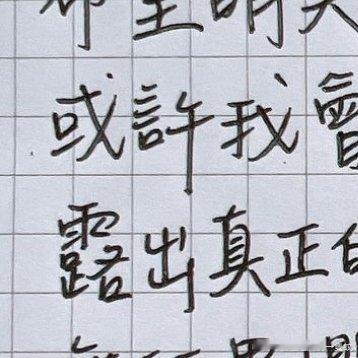 希望明天
或許我會
露出真正的